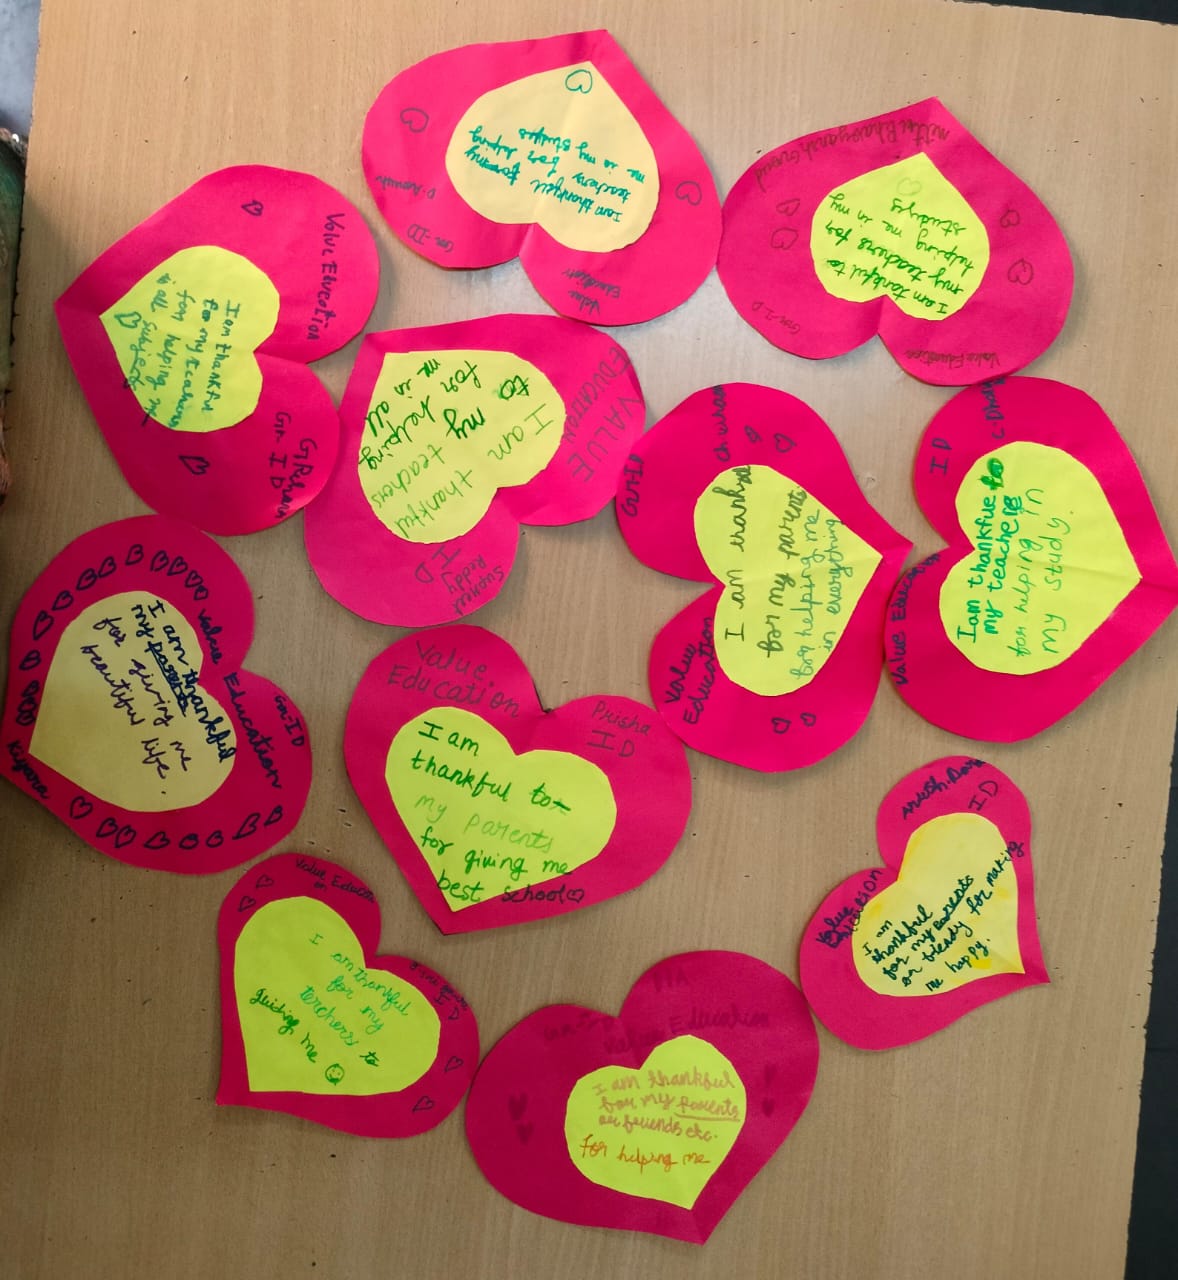 I am thankfull
teachers for helping
me in my studies
Gr-ID
Value
Education
I am tankful to
my teachers for
helping me in my
studyes
Gr-I D
Value Education
I am thankful
to my teachers
for helping me
in all subjects
Gr-I D
VALUE
EDUCATION
I am thankful
to my teachers
for helping
me in all
Reddy
I D
Value
Education
I am thankful
for my parents
for helping me
in everything
C.Dhanu
ID
Value Education
I am thankful to
my teachers
for helping in
my study.
Value Education
Gr-ID
Kiyara
I am thankful
my parents
for giving me
beautiful life.
Value
Education
Prisha
ID
I am
thankful to
my parents
for giving me
best school
Value Educati
on
ID
I am thankful
for my
terchers to
guiding me
ID
Value
Education
I am
thankful
for my parents
or friends for making
me happy.
Value Education
I am thankful
for my parents
or friends etc.
For helping me